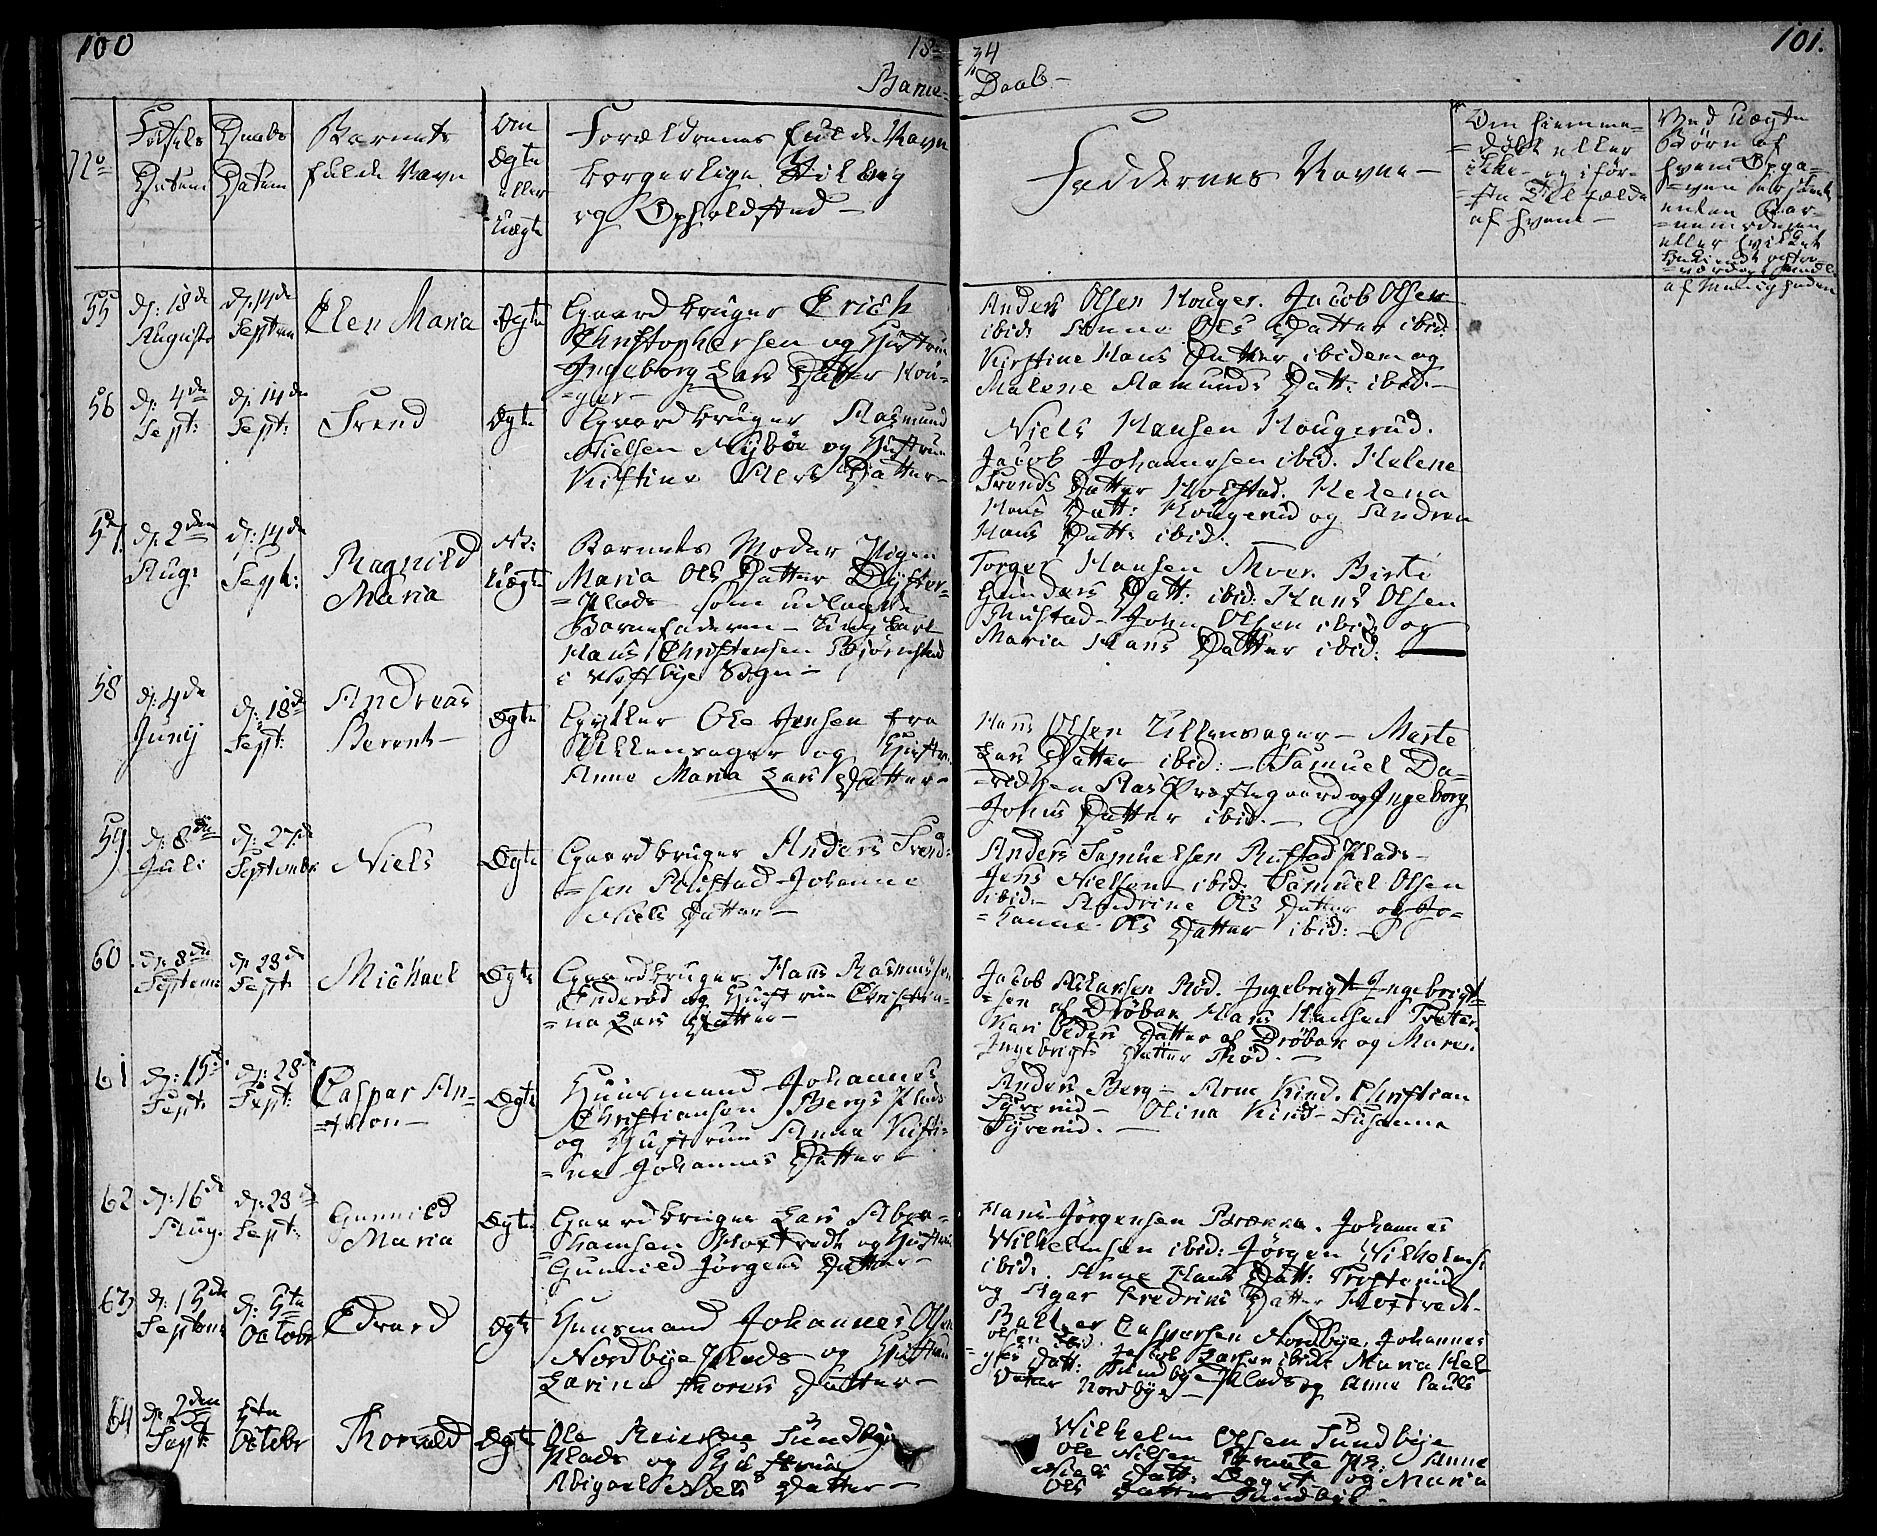 100
18
34
101.
Barne-
=Daab-
No
Fødsels
Datum
Daabs
Datum
Barnets
fulde Navn
Om
Ægte
eller
Uægte
Forældrenes fulde Navn
borgerlige Stilling
og Opholdsted-
Faddernes Navne-
Om hjemme-
=døbt eller
ikke- og i før-
=ste Tilfælde
af hvem-
Ved Uægte
Børn af
hvem Opga-
enten Bar-
=nemoderen
eller hvilket
af Menigheden
55
d: 18de
Augusti
d: 14de
Septem
Elen Maria
Ægte
Gaardbruger Erich
Christophersen og Hustrue
Ingeborg Lars Datter Hou-
=ger-
Anders Olsen Houger. Jacob Olsen
ibid: Anne Ols Datter ibid:
Kirstine Hans Datter ibidem og
Malene Aamunds Datt: ibid:-
56
d: 4de
Sept:
d: 14de
Sept:
Trend
Ægte
Gaardbruger Rasmund
Nielsen Nybøe og Hustrue
Kistine Datter-
Niels Hansen Hougerud.
Jacob Johannesen ibid. Helene
Trends Datter Holstad. Helena
Hans Datt: Hougerud og Andrea
Hans Datt: ibid.
57.
d: 2den
Aug:
d: 14de
Sept:
Ragnild
Maria
Uægte
Barnets Moder Pigen
Maria Ols Datter Dyster-
=Plads som udlagde
Barnefaderen- Ungkarl
Hans Christensen Bjørnstad
i Vestbye Sogn-
Torger Hansen Moer. Birte
Gunders Datt: ibid: Hans Olsen
Rustad- John Olsen ibid: og
Maria Hans Datter ibid:
58
d: 4de
Junij
d: 18de
Sept:
Andreas
Berent-
Ægte
Gjæstler Ole Jensen fra
Ullensager og Hustr:
Anne Maria Lars Datter-
Hans Olsen Ullensager- Marte
Lars Datter ibid:- Samuel Da-
=vidsen Aas Præstegaard og Ingeborg
Johns Datter ibid.-
59.
d: 8de
Juli
d: 27de
Septembr
Niels
Ægte
Gaardbruger Anders Trend-
=sen Pollstad Johanne
Niels Datter-
Anders Samuelsen Rustad Plads-
Jens Nielsen- ibid. Samuel Olsen
ibid- Andrine Ols Datter og Jo-
=hanne Ols Datter ibid:-
60
d: 8de
Septemb
d: 28de
Sept
Michael
Ægte
Gaardbruger Hans Rasmussen
Enderød og Hustrue Christia-
=na Lars Datter-
Jacob Aslaksen Rød. Ingebrigt Ingebrigt-
=sen af Drøbak Hans Hansen Treter
Kari Peders Datter af Drøbak og Maren
Ingebrigts Datter Rød.-
61
d: 15de
Sept:
d: 28de
Sept:
Caspar An-
=thon-
Ægte
Huusmand Johannes
Christiansen Bergs Plads
og Hustrue Anna Kisti-
=ne Johannes Datter-
Anders Berg- Arne Kind. Christian
Fyrerud- Olina Kind- Susanna
Fyrerud.-
62
d: 16de
Aug.
d: 28de
Sept:
Gunnild
Maria
Ægte
Gaardbruger Lars Abra-
=hamsen Hoxtvedt og Hustrue
Gunnild Jørgens Datter-
Hans Jørgensen Brække. Johannes
Wilhelmsen ibid: Jørgen Wilhelms:
ibid: Anne Hans Datt: Trosterud
og Agar Fredriks Datter Hoxtvedt-
63
d: 13de
Septem
d: 5te
Octobr
Edvard
Ægte
Huusmand Johannes Olsen
Nordbye Plads og Hustrue
Larine Thores Datter-
Baltzer Caspersen Nordbye. Johannes
Olsen ibid. Jacob Larsen ibid: Maria Hel-
=ges Datt: Sundbye Plads og Anne Pauls
Datter Nordbye-
64
d: 2den
Sept:
5te
Octobr
Thorvald
Ægte
Ole Sundbye
Plads og Hustrue
Abigael Niels Datter-
Wilhelm Olsen Sundbye
Ole Nilsen Anne
Niels Datt: og Maria
Ols Datter Sundbye-